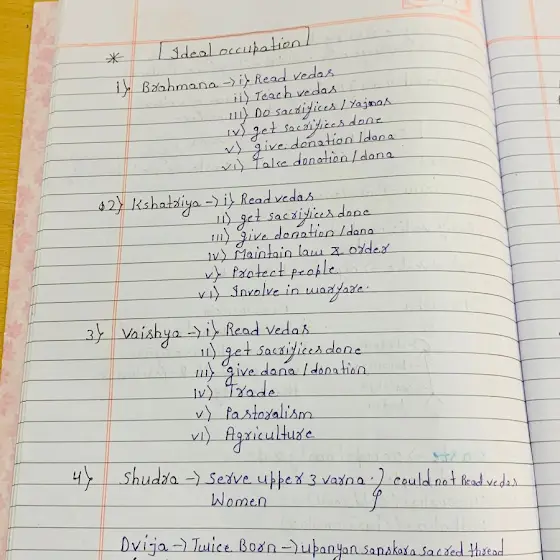 * Ideal occupation
1} Brahmana → i} Read vedas
ii) Teach vedas
iii) Do sacrifices / Yajnas
iv) get sacrifices done
v) give donation / dana
vi) Take donation / dana
2} Kshatriya → i) Read vedas
ii) get sacrifices done
iii) give donation / dana
iv) Maintain law & order
v) Protect people
vi) Involve in warfare.
3} Vaishya → i} Read vedas
ii) get sacrifices done
iii) give dana / donation
iv) Trade
v) Pastoralism
vi) Agriculture
4} Shudra → Serve upper 3 varna. } could not Read vedas
Women
Dvija → Twice Born → upanyan sanskara sacred thread